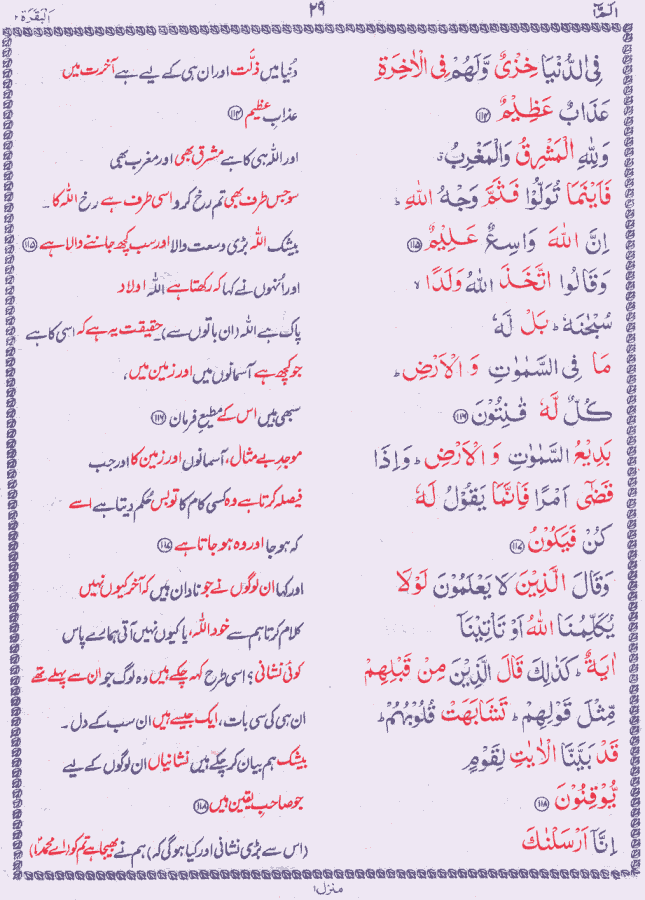 الٓمّٓ ۱ ۲۹ اَلْبَقَرَة ۲
فِی الدُّنْیَا خِزْیٌ وَّلَهُمْ فِی الْاٰخِرَةِ دُنیا میں ذلّت اور ان ہی کے لیے ہے آخرت میں
عَذَابٌ عَظِیْمٌ ﴿۱۱۴﴾ عذابِ عظیم ﴿۱۱۴﴾
وَلِلّٰهِ الْمَشْرِقُ وَالْمَغْرِبُ ق اور اللہ ہی کا ہے مشرق بھی اور مغرب بھی
فَاَیْنَمَا تُوَلُّوْا فَثَمَّ وَجْهُ اللّٰهِ ؕ سو جس طرف بھی تم رخ کرو اسی طرف ہے رخ اللہ کا ۔
اِنَّ اللّٰهَ وَاسِعٌ عَلِیْمٌ ﴿۱۱۵﴾ بیشک اللہ بڑی وسعت والا اور سب کچھ جاننے والا ہے ﴿۱۱۵﴾
وَقَالُوا اتَّخَذَ اللّٰهُ وَلَدًا ۙ اور اُنہوں نے کہا کہ رکھتا ہے اللہ اولاد
سُبْحٰنَهٗ ؕ بَلْ لَّهٗ پاک ہے اللہ (ان باتوں سے) حقیقت یہ ہے کہ اسی کا ہے
مَا فِی السَّمٰوٰتِ وَ الْاَرْضِ ؕ جو کچھ ہے آسمانوں میں اور زمین میں ،
كُلٌّ لَّهٗ قٰنِتُوْنَ ﴿۱۱۶﴾ سبھی ہیں اس کے مطیعِ فرمان ﴿۱۱۶﴾
بَدِیْعُ السَّمٰوٰتِ وَ الْاَرْضِ ؕ وَاِذَا موجدِ بے مثال، آسمانوں اور زمین کا اور جب
قَضٰۤی اَمْرًا فَاِنَّمَا یَقُوْلُ لَهٗ فیصلہ کرتا ہے وہ کسی کام کا تو بس حُکم دیتا ہے اسے
كُنْ فَیَكُوْنُ ﴿۱۱۷﴾ کہ ہو جا اور وہ ہو جاتا ہے ﴿۱۱۷﴾
وَقَالَ الَّذِیْنَ لَا یَعْلَمُوْنَ لَوْلَا اور کہا ان لوگوں نے جو نادان ہیں کہ آخر کیوں نہیں
یُكَلِّمُنَا اللّٰهُ اَوْ تَاْتِیْنَاۤ کلام کرتا ہم سے خود اللہ، یا کیوں نہیں آتی ہمارے پاس
اٰیَةٌ ؕ كَذٰلِكَ قَالَ الَّذِیْنَ مِنْ قَبْلِهِمْ کوئی نشانی؟ اسی طرح کہہ چکے ہیں وہ لوگ جو ان سے پہلے تھے
مِّثْلَ قَوْلِهِمْ ؕ تَشَابَهَتْ قُلُوْبُهُمْ ؕ ان ہی کی سی بات ، ایک جیسے ہیں ان سب کے دل ۔
قَدْ بَیَّنَّا الْاٰیٰتِ لِقَوْمٍ بیشک ہم بیان کر چکے ہیں نشانیاں ان لوگوں کے لیے
یُّوْقِنُوْنَ ﴿۱۱۸﴾ جو صاحبِ یقین ہیں ﴿۱۱۸﴾
اِنَّاۤ اَرْسَلْنٰكَ (اس سے بڑی نشانی اور کیا ہوگی کہ) ہم نے بھیجا ہے تم کو (اے محمدؐ!)
منزل ۱